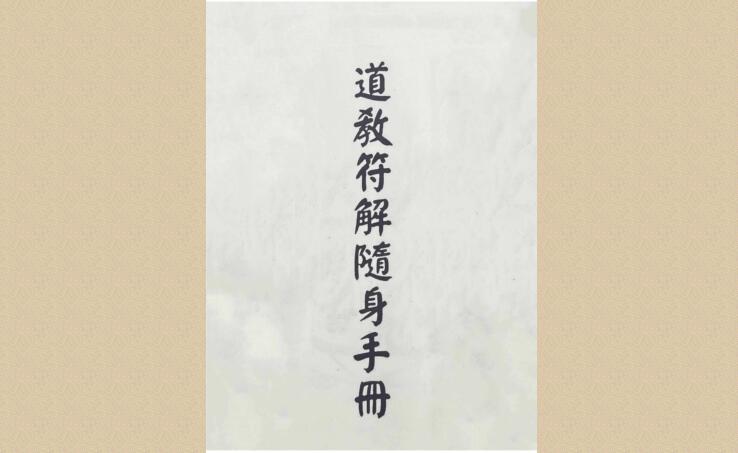 道教符解隨身手冊